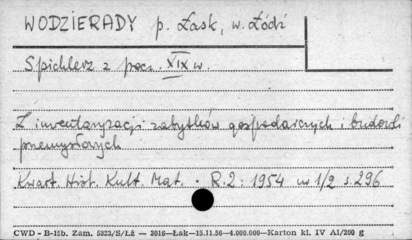 WODZIERADY p. Łask, w. Łódź
Spichlerz z pocz. XIX w.
Z inwentaryzacji zabytków gospodarczych i budowli
przemysłowych
Kwart. Hist. Kult. Mat. · R.2: 1954 nr 1/2 s. 296
CWD - B-15b. Zam. 5823/S/Łż — 3016—Łak—15.11.56—4.000.000—Karton kl. IV A1/200 g